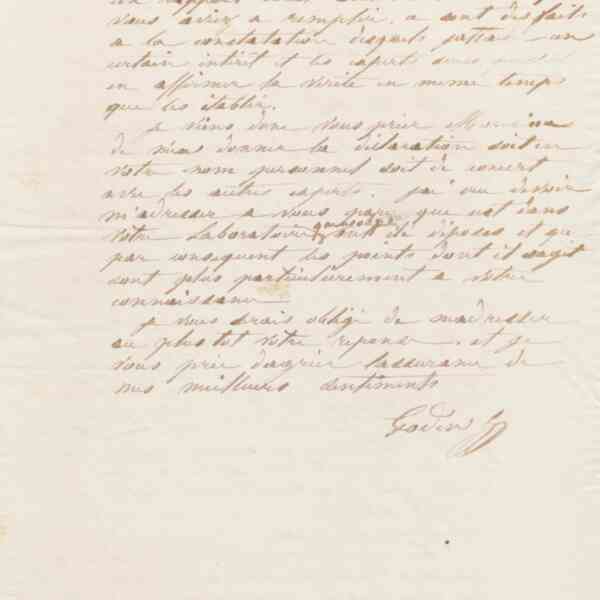 vous aviez a remplir. a sont des faits
a la constatation desquels jattache un
certain intérêt et les experts
en affirmer la vérité en même temps
que les établir.
Je viens donc vous prier Monsieur
de m'en donner la déclaration soit en
votre nom personnel soit de concert
avec les autres experts. Jai cru devoir
m'adresser a vous parce que cest dans
votre Laboratoire ont été déposés et que
par consequent les points dont il sagit
sont plus particulièrement a votre
connaissance
Je vous serais obligé de madresser
au plus tot votre reponse. et je
vous prie dagréer lassurance de
mes meilleurs sentiments
Godin